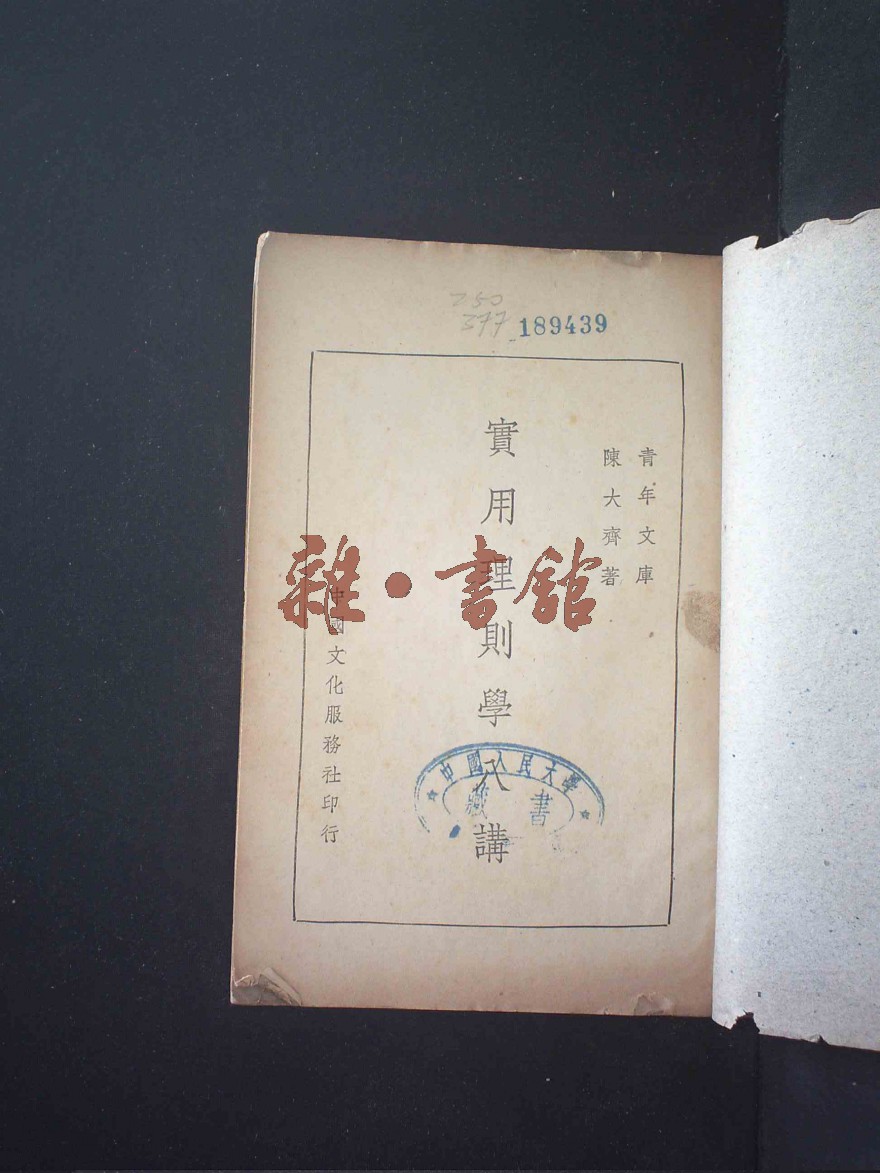 250
377
189439
青年文庫
陳大齊著
實用理則學八講
中國文化服務社印行
中國人民大學
藏書
雜·書館